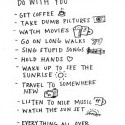 DO WITH YOU
- GET COFFEE
- TAKE DUMB PICTURES
- WATCH MOVIES
- GO ON LONG WALKS
- SING STUPID SONGS
- HOLD HANDS
- WAKE UP TO SEE THE
SUNRISE
- TRAVEL TO SOMEWHERE
NEW
- LISTEN TO NICE MUSIC
- WATCH THE SUN SET
- EVERYTHING ALL OVER